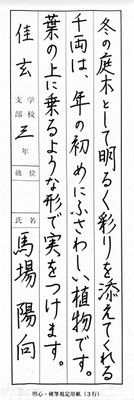 冬の庭木として明るく彩りを添えてくれる
千両は、年の初めにふさわしい植物です。
葉の上に乗るような形で実をつけます。
学校
支部
佳玄
三年
級位
氏名
馬場陽向
照心・硬筆規定用紙(3行)